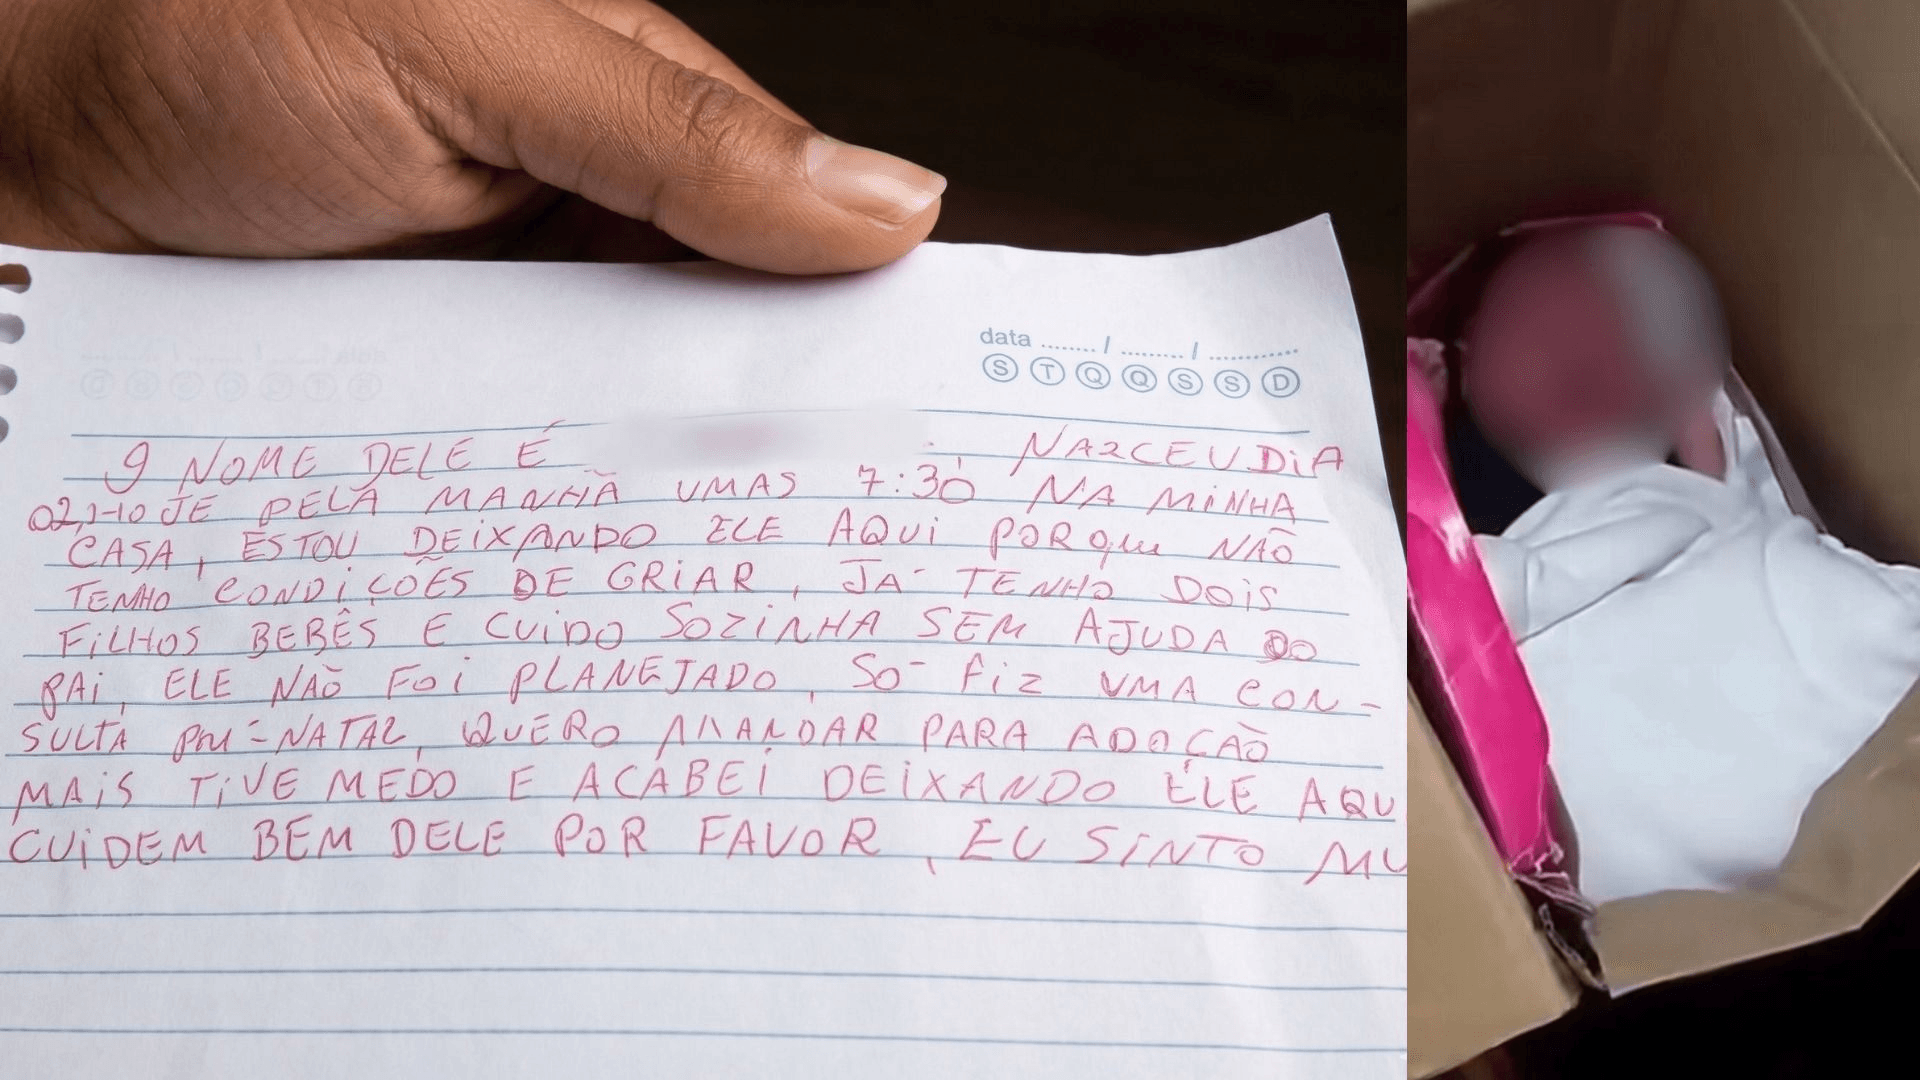 data ......../ ........./ ............
S T Q Q S S D
O NOME DELE É , NASCEU DIA
PELA MANHÃ UMAS 7:30 NA MINHA
CASA, ESTOU DEIXANDO ELE AQUi PORque NÃO
TENHO CONDiÇÕES DE CRiAR, JÁ TENHO DOiS
FiLHOS BEBÊS E CUiDO SOZiNHA SEM AJUDA DO
PAi, ELE NÃO FOi PLANEJADO, SÓ FiZ UMA CON-
SULTA PRÉ-NATAL, QUERO MANDAR PARA ADOÇÃO
MAiS TiVE MEDO E ACABEi DEiXANDO ELE AQU
CUiDEM BEM DELE POR FAVOR, EU SiNTO MU